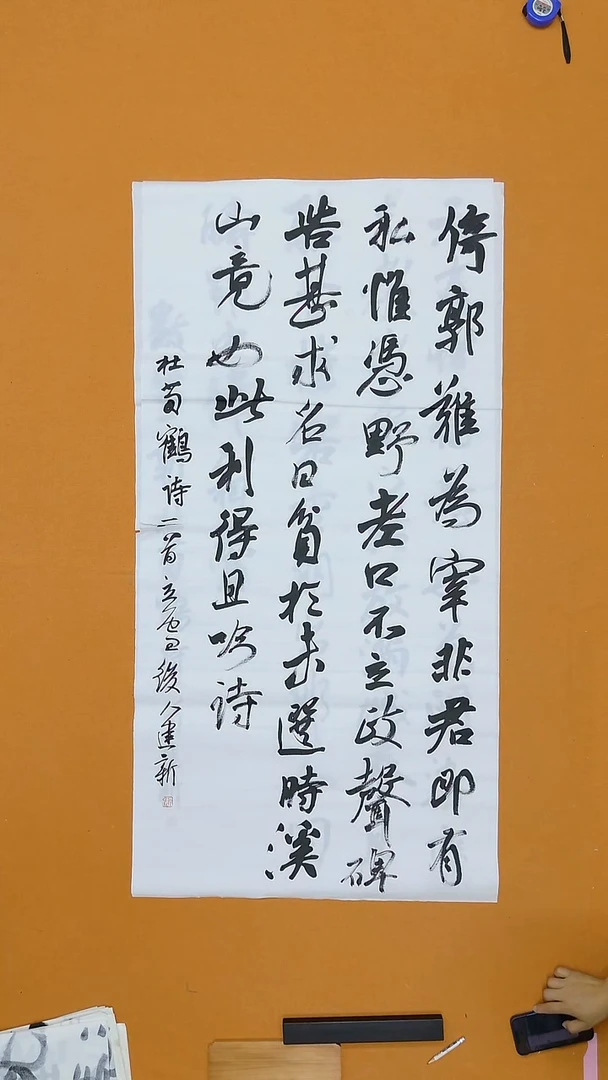 倚郭難為宰非君即有
私惟憑野老口不立政聲碑
苦甚求名日貧於未選時溪
山竟如此利得且吟詩
杜荀鶴詩二首立雪後人建新